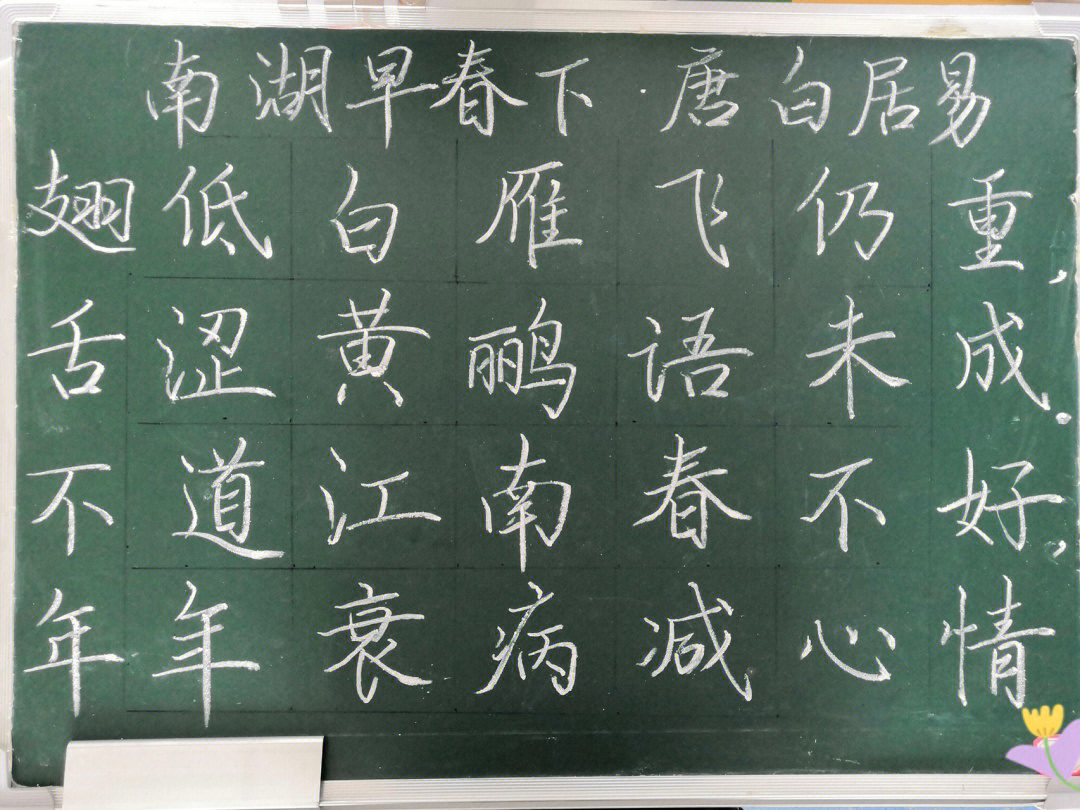 南湖早春下·唐白居易
翅低白雁飞仍重,
舌涩黄鹂语未成.
不道江南春不好,
年年衰病减心情